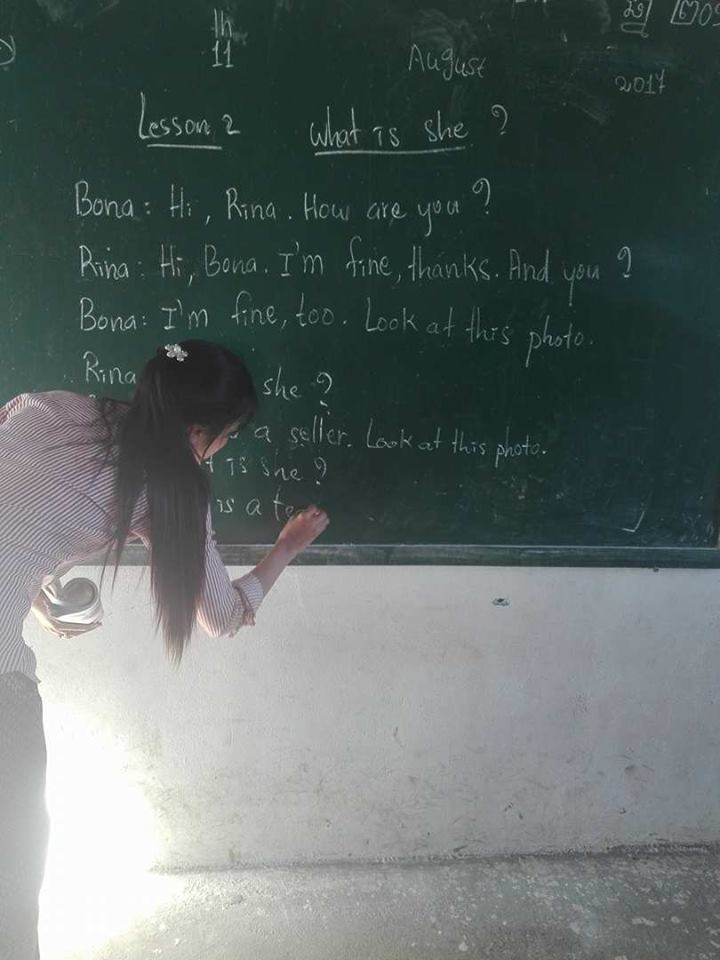 th
11 August 2017
Lesson 2 What is she ?
Bona : Hi , Rina . How are you ?
Rina : Hi, Bona. I'm fine, thanks. And you ?
Bona : I'm fine, too. Look at this photo.
Rina she ?
a seller. Look at this photo.
is she ?
is a te